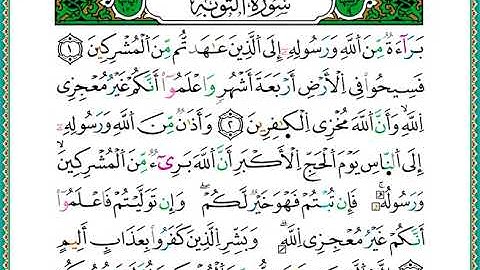 سُورَةُ التَّوْبَةِ
بَرَآءَةٌ مِّنَ اللَّهِ وَرَسُولِهٖٓ إِلَى الَّذِينَ عَاهَدتُّم مِّنَ الْمُشْرِكِينَ ١
فَسِيحُوا فِي الْأَرْضِ أَرْبَعَةَ أَشْهُرٍ وَاعْلَمُوٓا أَنَّكُمْ غَيْرُ مُعْجِزِي
اللَّهِ ۙ وَأَنَّ اللَّهَ مُخْزِي الْكٰفِرِينَ ٢ وَأَذَانٌ مِّنَ اللَّهِ وَرَسُولِهٖٓ
إِلَى النَّاسِ يَوْمَ الْحَجِّ الْأَكْبَرِ أَنَّ اللَّهَ بَرِيٓءٌ مِّنَ الْمُشْرِكِينَ ۙ
وَرَسُولُهُ ۚ فَإِن تُبْتُمْ فَهُوَ خَيْرٌ لَّكُمْ ۖ وَإِن تَوَلَّيْتُمْ فَاعْلَمُوٓا
أَنَّكُمْ غَيْرُ مُعْجِزِي اللَّهِ ۗ وَبَشِّرِ الَّذِينَ كَفَرُوا بِعَذَابٍ أَلِيمٍ